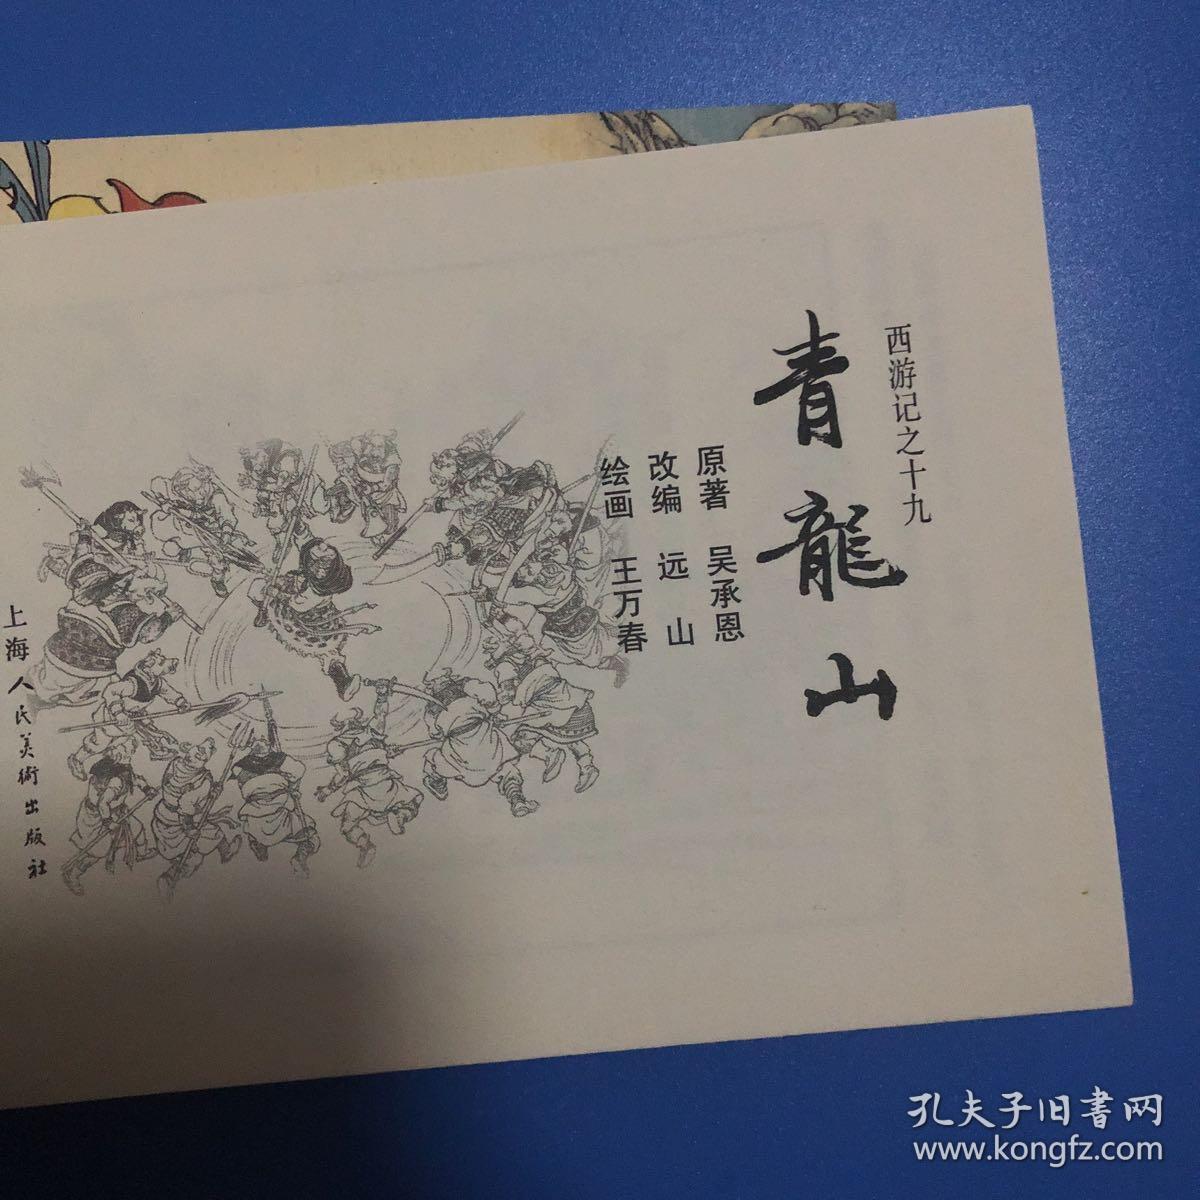 西游记之十九
青龍山
原著 吴承恩
改编 远山
绘画 王万春
上海人民美術出版社
孔夫子旧書网
www.kongfz.com